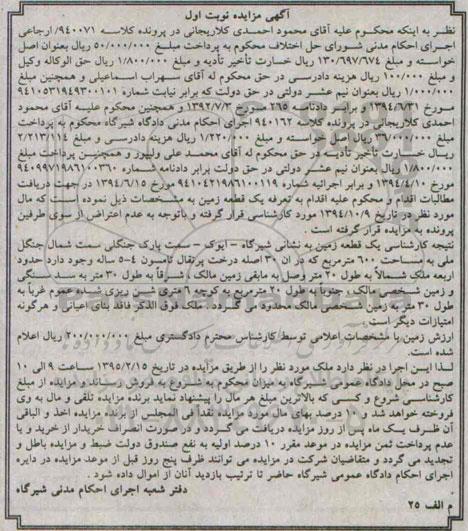 آگهی مزایده نوبت اول
نظر به اینکه محکوم علیه آقای محمود احمدی کلاریجانی در پرونده کلاسه ۹۴۰۰۷۱/ ارجاعی
اجرای احکام مدنی شورای حل اختلاف محکوم به پرداخت مبلغ ۵۰/۰۰۰/۰۰۰ ریال بعنوان اصل
خواسته و مبلغ ۱۳۰/۶۹۷/۶۷۴ ریال خسارت تأخیر تأدیه و مبلغ ۱/۸۰۰/۰۰۰ ریال حق الوکاله وکیل
و مبلغ ۱۰۰/۰۰۰ ریال هزینه دادرسی در حق محکوم له آقای سهراب اسماعیلی و همچنین مبلغ
۱/۰۰۰/۰۰۰ ریال بعنوان نیم عشر دولتی در حق دولت که برابر نیابت شماره ۹۴۱۰۵۳۱۹۴۹۳۰۰۱۰۱
مورخ ۱۳۹۴/۶/۳۱ و برابر دادنامه ۲۶۵ مورخ ۱۳۹۲/۷/۲ و همچنین محکوم علیه آقای محمود
احمدی کلاریجانی در پرونده کلاسه ۹۴۰۱۶۲ اجرای احکام مدنی دادگاه شیرگاه محکوم به پرداخت
مبلغ ۳۷/۰۰۰/۰۰۰ ریال اصل خواسته و مبلغ ۱/۲۲۰/۰۰۰ ریال هزینه دادرسی و مبلغ ۲/۲۱۳/۱۱۴
ریال خسارت تأخیر تأدیه در حق محکوم له آقای محمد علی ولیپور و همچنین پرداخت مبلغ
۱/۸۰۰/۰۰۰ ریال بعنوان نیم عشر دولتی در حق دولت برابر دادنامه شماره ۹۴۰۹۹۷۱۹۸۶۱۰۰۳۶۰
مورخ ۱۳۹۴/۴/۱۰ و برابر اجرائیه شماره ۹۴۱۰۴۲۱۹۸۶۱۰۰۱۱۹ مورخ ۱۳۹۴/۶/۱۵ در جهت دریافت
مطالبات اقدام و محکوم علیه اقدام به تعرفه یک قطعه زمین به مشخصات ذیل نموده است که مال
مورد نظر در تاریخ ۱۳۹۴/۱۰/۹ مورد کارشناسی قرار گرفته و باتوجه به عدم اعتراض از سوی طرفین
پرونده به مزایده قرار گرفته است.
نتیجه کارشناسی یک قطعه زمین به نشانی شیرگاه - ایوک - سمت پارک جنگلی سمت شمال جنگل
ملی به مساحت ۶۰۰ مترمربع که در آن ۳۰ اصله درخت پرتقال تامسون ۴-۵ ساله وجود دارد حدود
اربعه ملک شمالاً به طول ۲۰ متر وصل به مابقی زمین مالک، شرقاً به طول ۳۰ متر به سد سنگی
و زمین شخصی مالک، جنوبا به طول ۲۰ مترمربع به کوچه ۶ متری شن ریزی شده عموم غربا به
طول ۳۰ متر به زمین شخصی مالک محدود می گردد - ملک فوق الذکر فاقد بنای اعیانی و هرگونه
امتیازات دیگر است.
ارزش زمین با مشخصات اعلامی توسط کارشناس محترم دادگستری مبلغ ۲۰۰/۰۰۰/۰۰۰ ریال اعلام
شده است.
لذا این اجرا در نظر دارد ملک مورد نظر را از طریق مزایده در تاریخ ۱۳۹۵/۲/۱۵ ساعت ۹ الی ۱۰
صبح در محل دادگاه عمومی شیرگاه به میزان محکوم به فروش رساند و مزایده از مبلغ
کارشناسی شروع و کسی که بالاترین مبلغ هر مال را پیشنهاد نماید برنده مزایده تلقی و مال به وی
فروخته خواهد شد و ۱۰ درصد بهای مال مورد مزایده نقداً فی المجلس از برنده مزایده اخذ و الباقی
آن ظرف یک ماه پس از روز مزایده دریافت می گردد و در صورت انصراف خریدار از خرید و یا
عدم پرداخت ثمن مزایده در موعد مقرر ۱۰ درصد اولیه به نفع صندوق دولت ضبط و مزایده باطل و
تجدید می گردد و متقاضیان شرکت در مزایده می توانند ظرف پنج روز قبل از موعد مزایده در دایره
اجرای احکام دادگاه عمومی شیرگاه حاضر تا ترتیب بازدید آنان از اموال داده شود.
دفتر شعبه اجرای احکام مدنی شیرگاه
م الف ۲۵